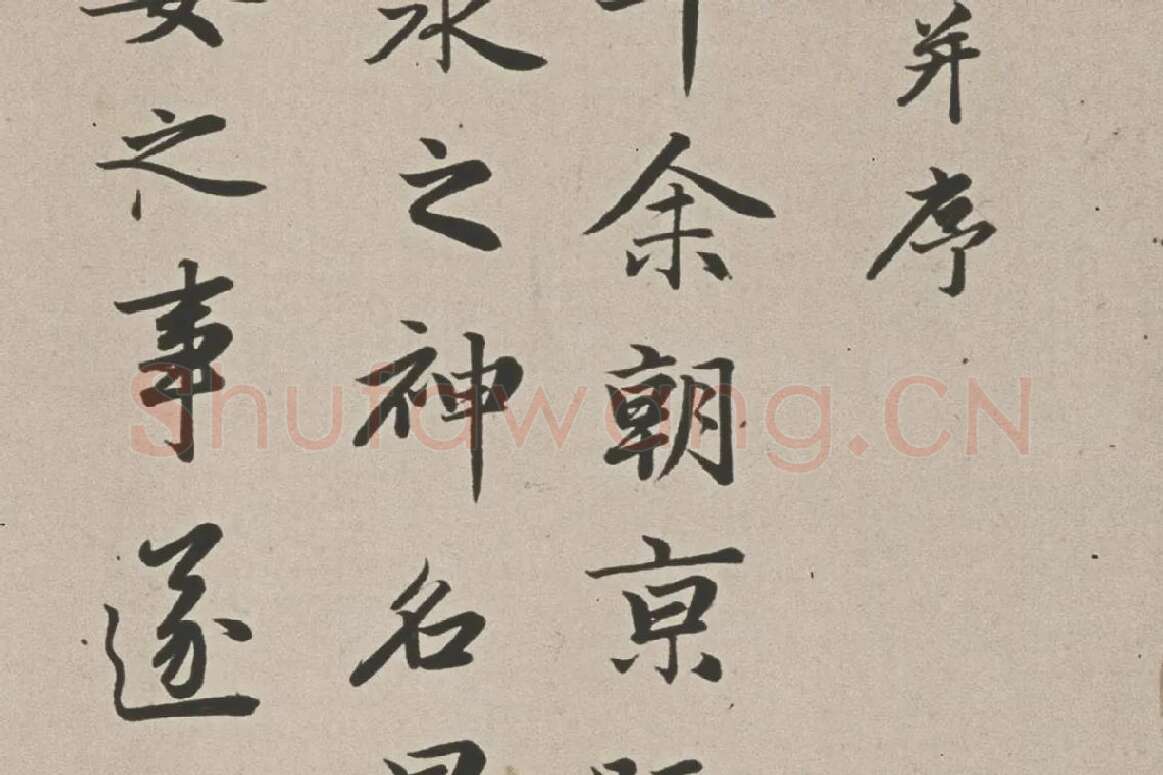 并序
年余朝亰
水之神名曰
之事遂
Shufawang.CN